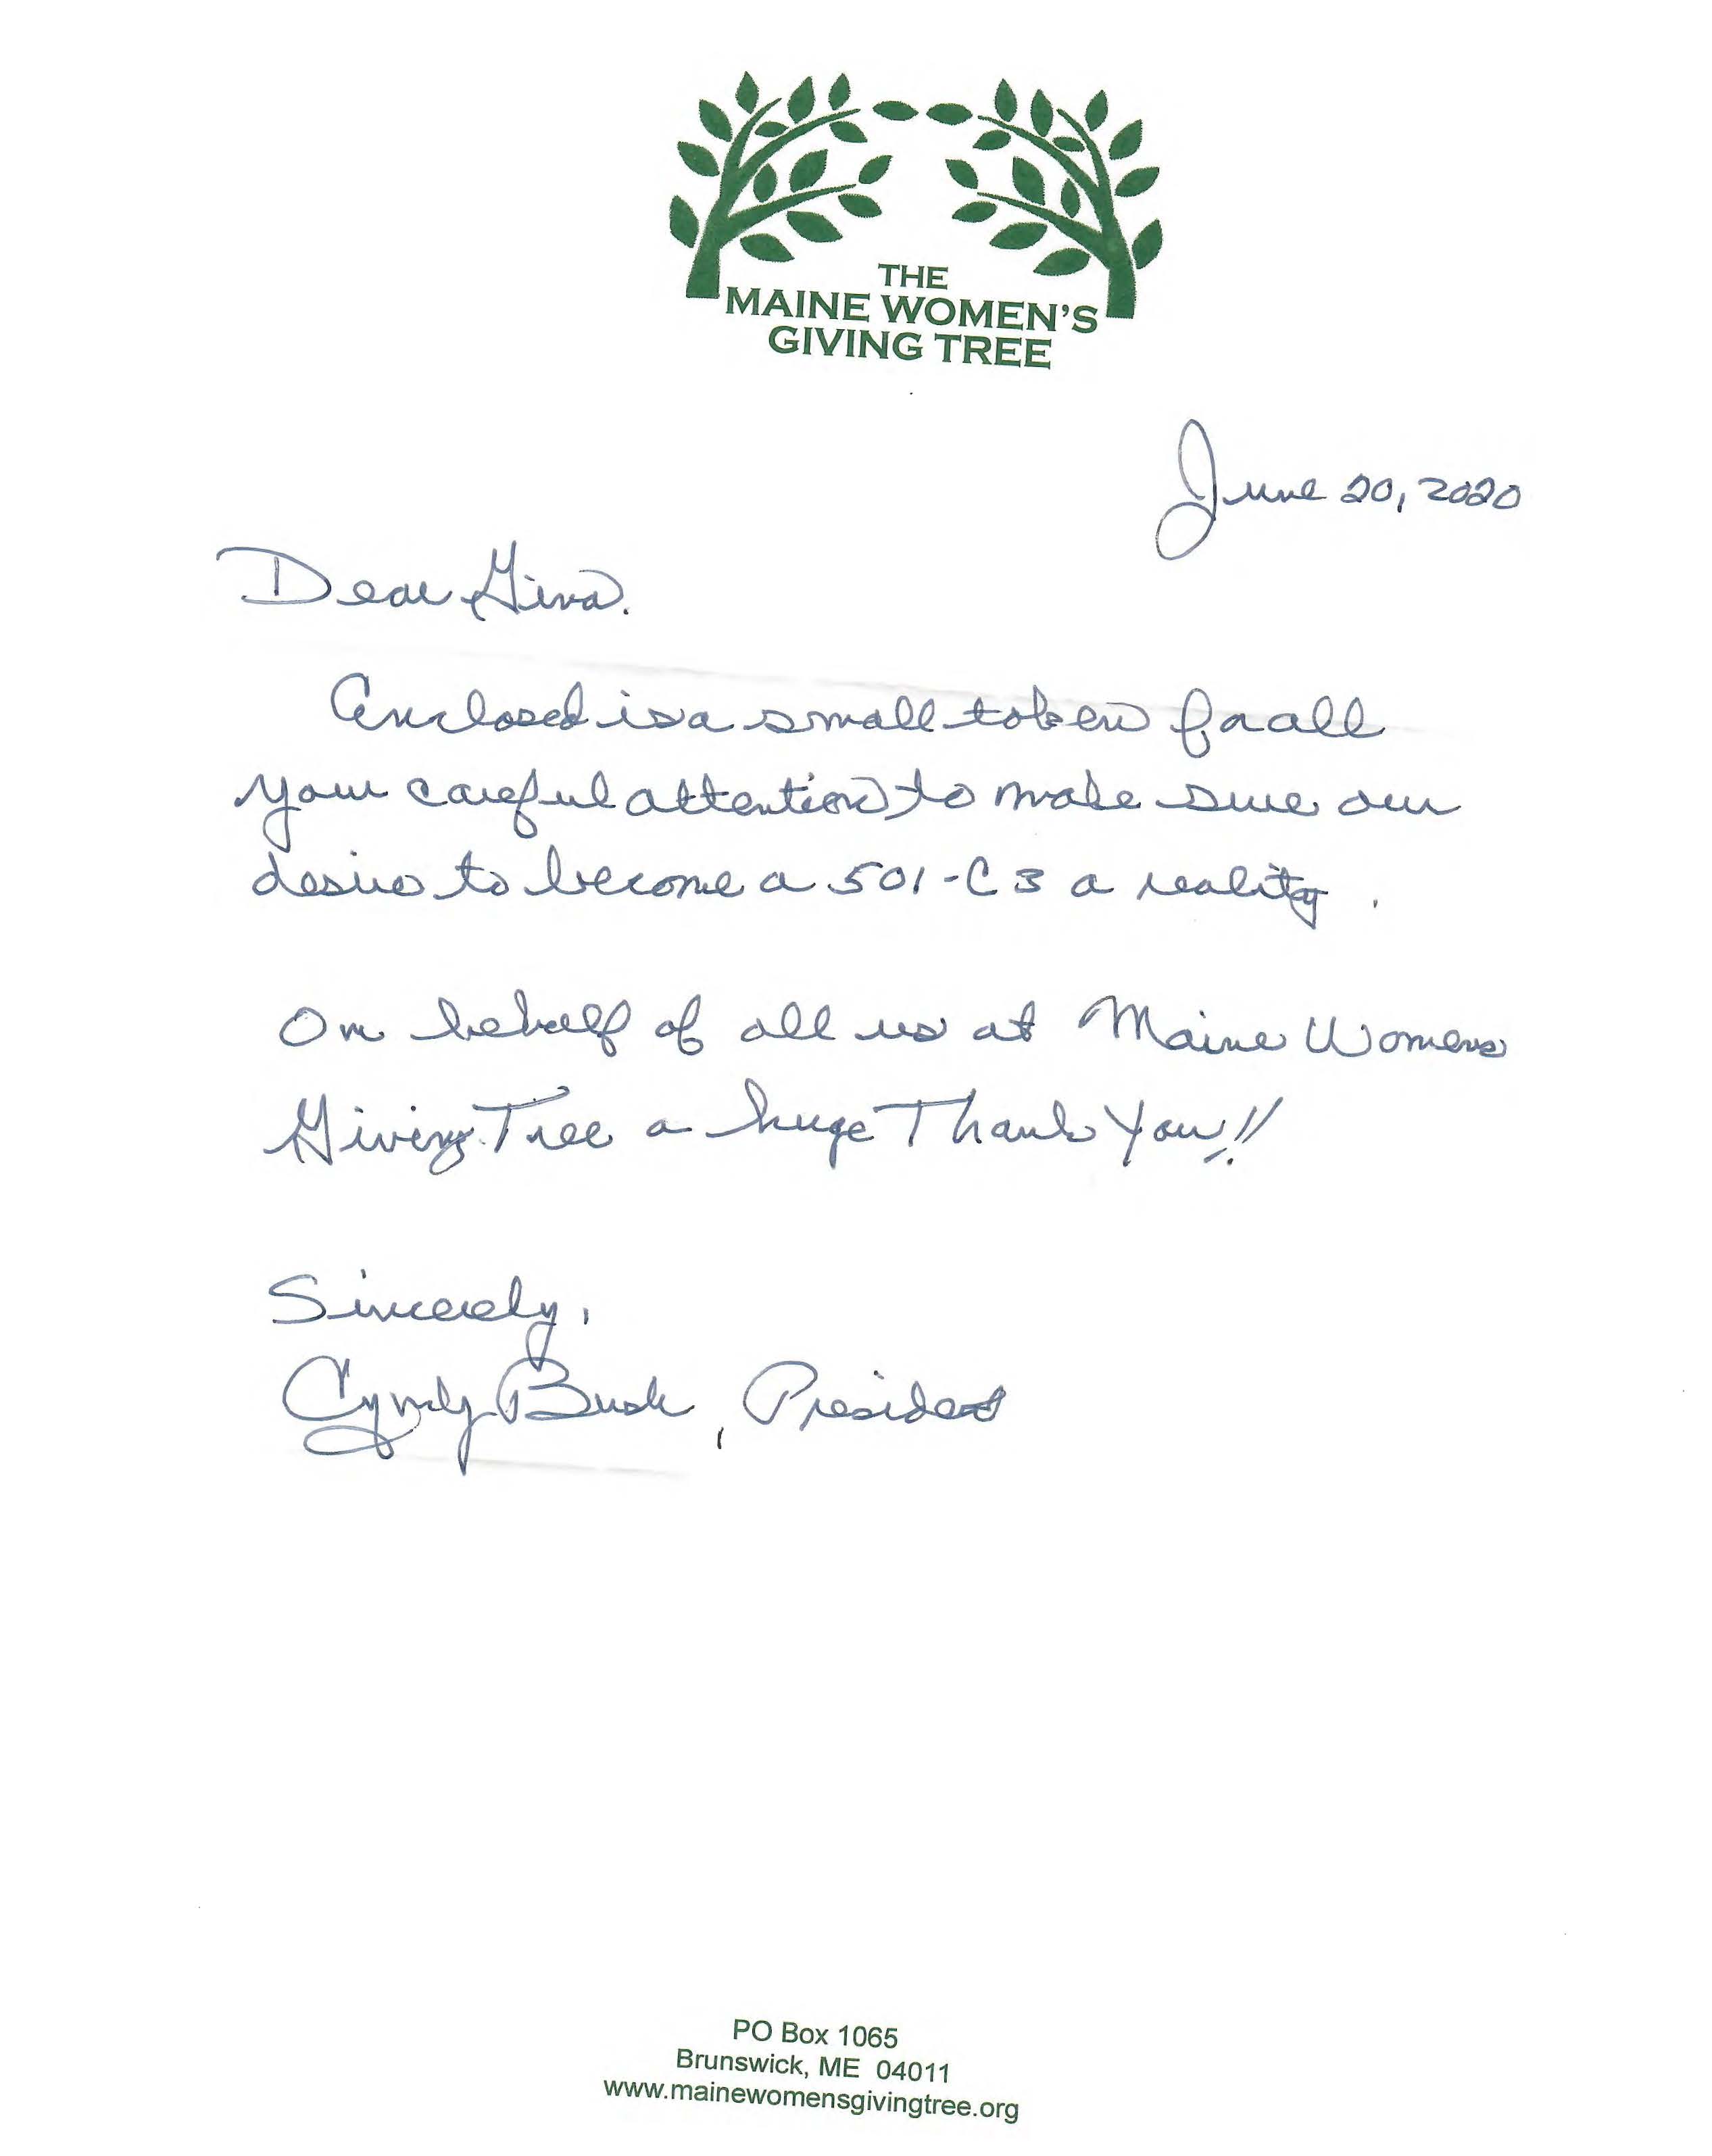 THE
MAINE WOMEN'S
GIVING TREE
June 20, 2020
Dear Gina.
Enclosed is a small token for all
your careful attention to make sure our
desire to become a 501-C3 a reality.
On behalf of all us at Maine Womens
Giving Tree a huge Thank You!!
Sincerely,
Cyndy Bush, President
PO Box 1065
Brunswick, ME 04011
www.mainewomensgivingtree.org